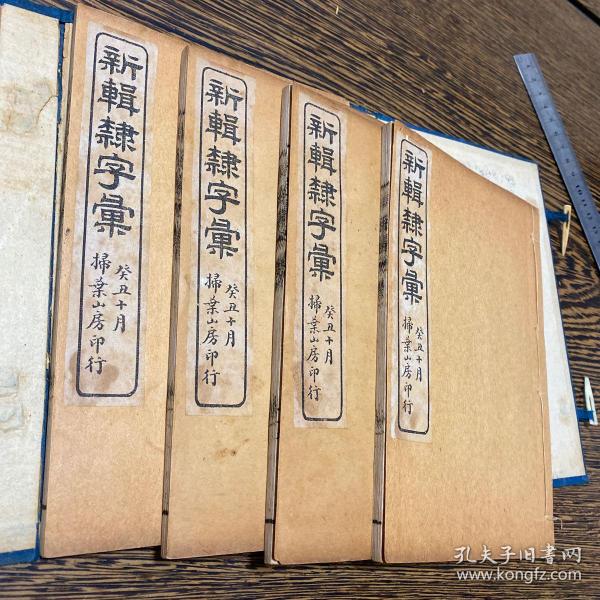 新輯隸字彙
癸丑十月
掃葉山房印行
新輯隸字彙
癸丑十月
掃葉山房印行
新輯隸字彙
癸丑十月
掃葉山房印行
新輯隸字彙
癸丑十月
掃葉山房印行
孔夫子旧书网
www.kongfz.com